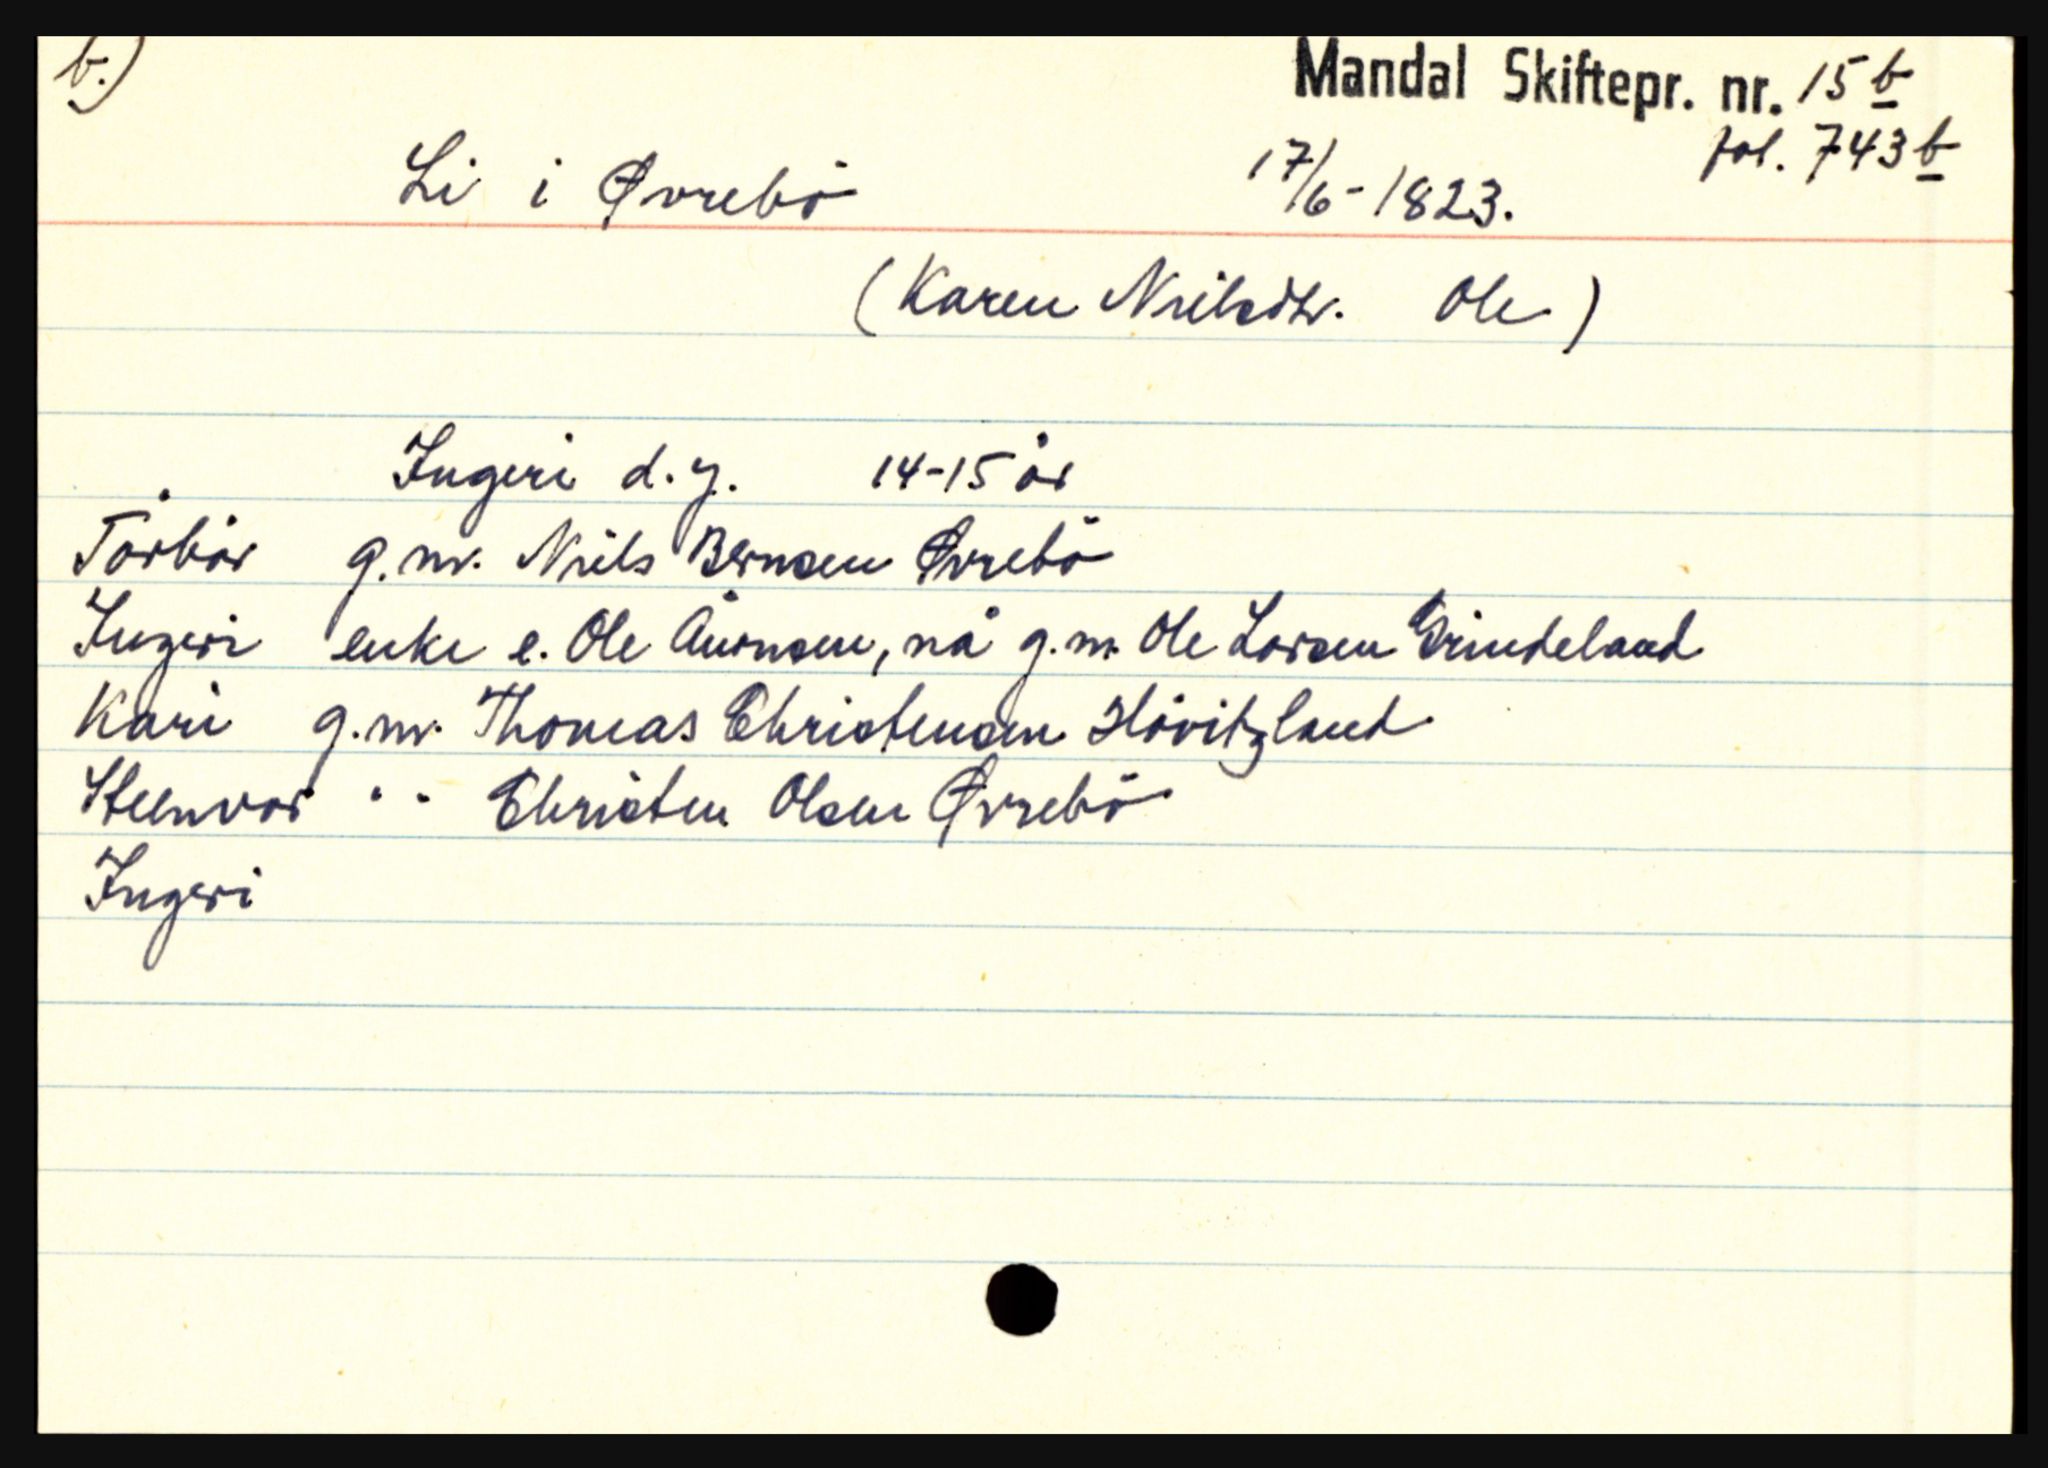 b.)
Mandal Skiftepr. nr. 15 b
fol. 743 b
Li i Øvrebö 17/6-1823.
(Karen Nielsdtr. Ole)
Ingeri d. y. 14-15 år
Tårbör g.m. Niels Bernsen Øvrebö
Ingeri enke e. Ole Ånonsen, nå g.m. Ole Larsen Grindeland
Kari g.m. Thomas Christensen Hövitzland
Steenvor " " Christen Olsen Øvrebö
Ingeri